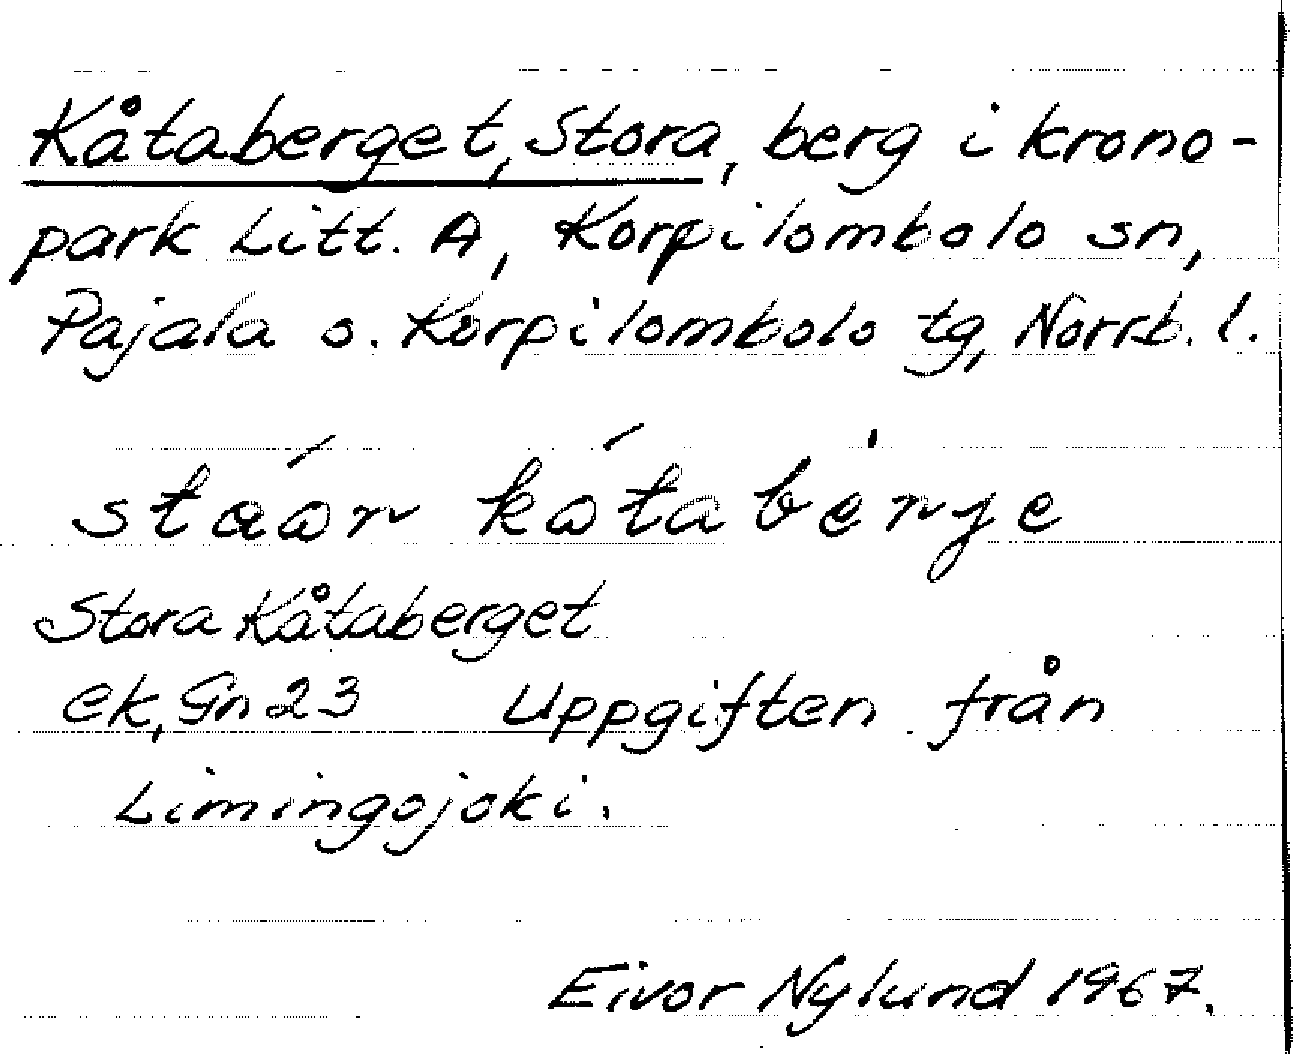 Kåtaberget, Stora, berg i krono-
park Litt. A, Korpilombolo sn,
Pajala o. Korpilombolo tg, Norrb. l.
Stora Kåtaberget
ek, Gn 23 Uppgiften från
Limingojoki.
Eivor Nylund 1967.